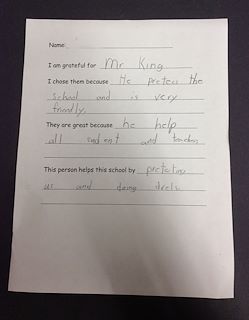 Name:
I am grateful for Mr King
I chose them because He protess the
school and is very
frindly.
They are great because he help
all sudent and teachers
This person helps this school by protecting
us and doing